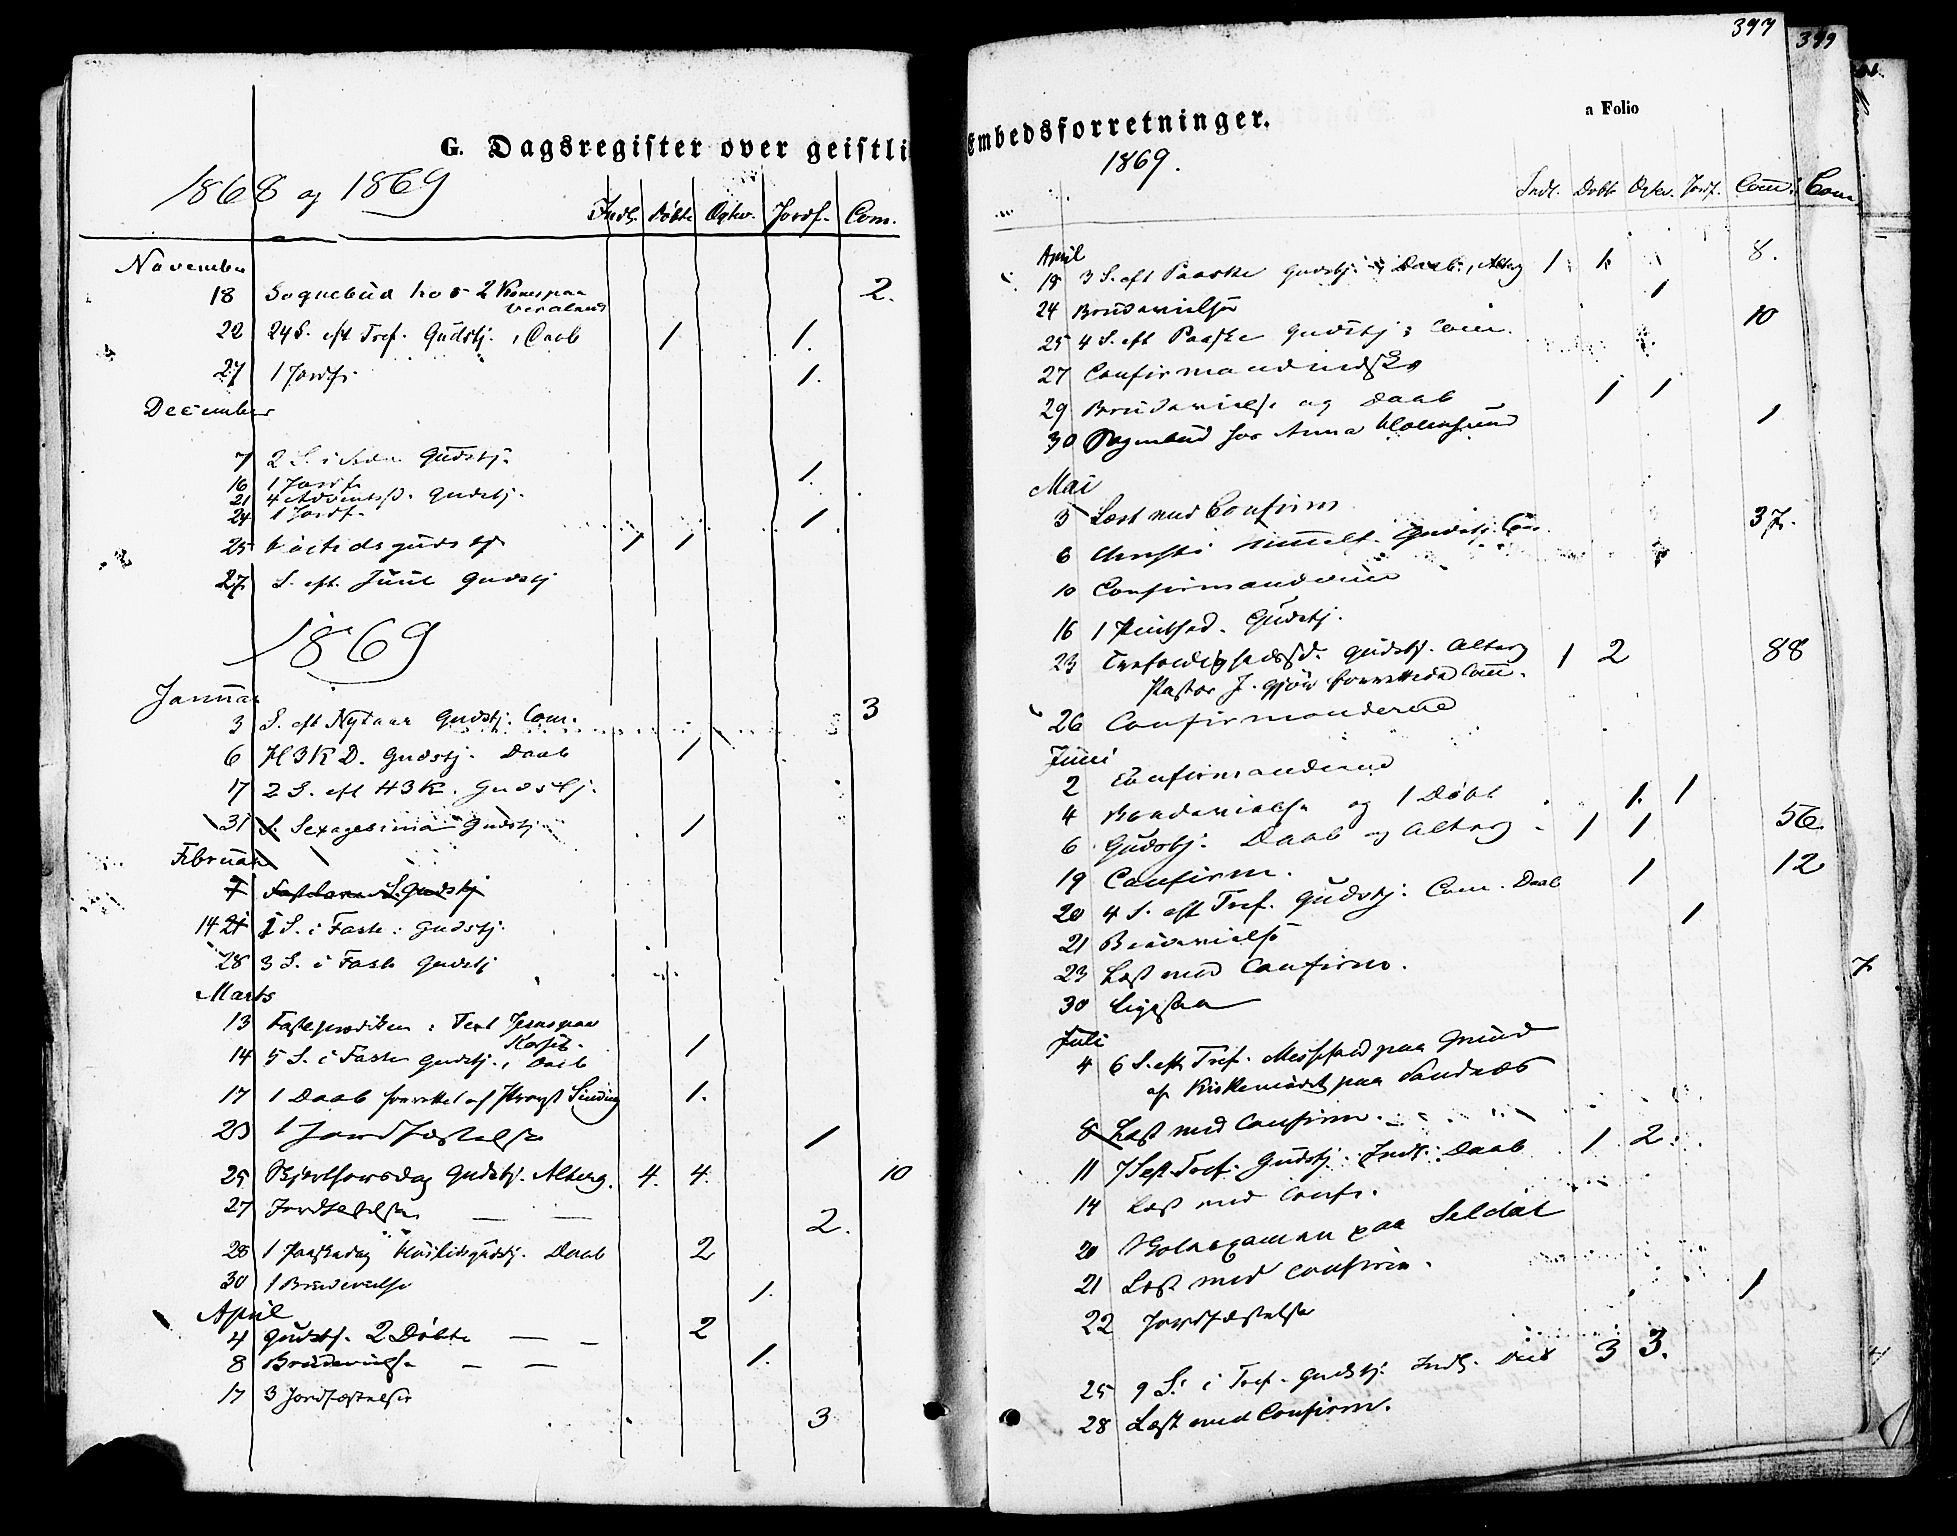 G. Dagsregister over geistli
1868 og 1869
Indl. Döbte Ægtev. Jordf. Com.
November
18 Sognebud hos 2
2.
22 24 S. eft Tref. Gudstj. , Daab 1 1.
27 1 Jordf. 1.
December
7 2 S. i Gudstj.
16 1 Jordf. 1.
21 4 Adventss. Gudstj.
24 1 Jordf. 1.
25 1 1
27. S. eft. Juul Gudstj
1869
Januar
3 S. eft Nytaar Gudstj. Com. 3
6 H3KD. Gudstj. Daab 1
17 2 S. eft H3K. Gudstj.
31 S. Sexagesima Gudstj 1
Februar
7 Fastelavns S. Gudstj
14 21 1 S. i Faste : Gudstj.
28 3 S. i Faste Gudstj
Marts
13 Fasteprædiken : Text Jesus paa
Korset.
14 5 S. i Faste Gudstj. , Daab 1
17 1 Daab forrettet af Provst Sinding 1.
23 1 Jordfæstelse 1
25 Skjærthorsdag Gudstj. Alterg. 4. 4. 10
27 Jordfæstelse — — 2.
28 1 Paaskedag Høitidsgudstj. Daab 2
30 1 Brudevielse 1.
April
4 Gudstj. 2 Döbte — — 2
8 Brudevielse — — 1.
17 3 Jordfæstelser
3
397
399
Embedsforretninger.
a Folio
1869.
Indl. Döbte Ægtev. Jordf. Com: Com
April
18 3 S. eft Paaske Gudstj. Daab , Alterg 1 1 8.
24 Brudevielse 1
25 4 S. eft Paaske Gudstj: Com. 10
27
29 Brudevielse og Daab 1 1
30 Sognebud hos Anna 1
Mai
3 Læst med Confirm
6 Christi Himmelf. Gudstj. Com. 37.
10 Confirmanderne
16 1 Pintsed. Gudstj.
23 Trefoldighedssd. Gudstj. Alterg 1 2 88
Pastor J. forrettede Com.
26 Confirmanderne
Juni
2 Confirmanderne
4 Brudevielse og 1 Döbt 1. 1
6 Gudstj. Daab og Alterg 1 1 56.
19 Confirm.
20 4 S. eft Tref. Gudstj. Com. Daab 1 12
21 Brudevielse 1
23 Læst med Confirm.
7
30 Ligesaa
Juli
4 6 S. eft Tref. Messefald paa Grund
af Kirkemödet paa Sandnæs
8 Læst med Confirm.
11 7 S eft Tref. Gudstj. Indl. Daab 1 2.
14 Læst med Conf.
20 Skoleexamen paa
21 Læst med Confirm.
22 Jordfæstelse 1
25 9 S. i Tref. Gudstj. Indl. Daab 3 3.
28 Læst med Confirm.